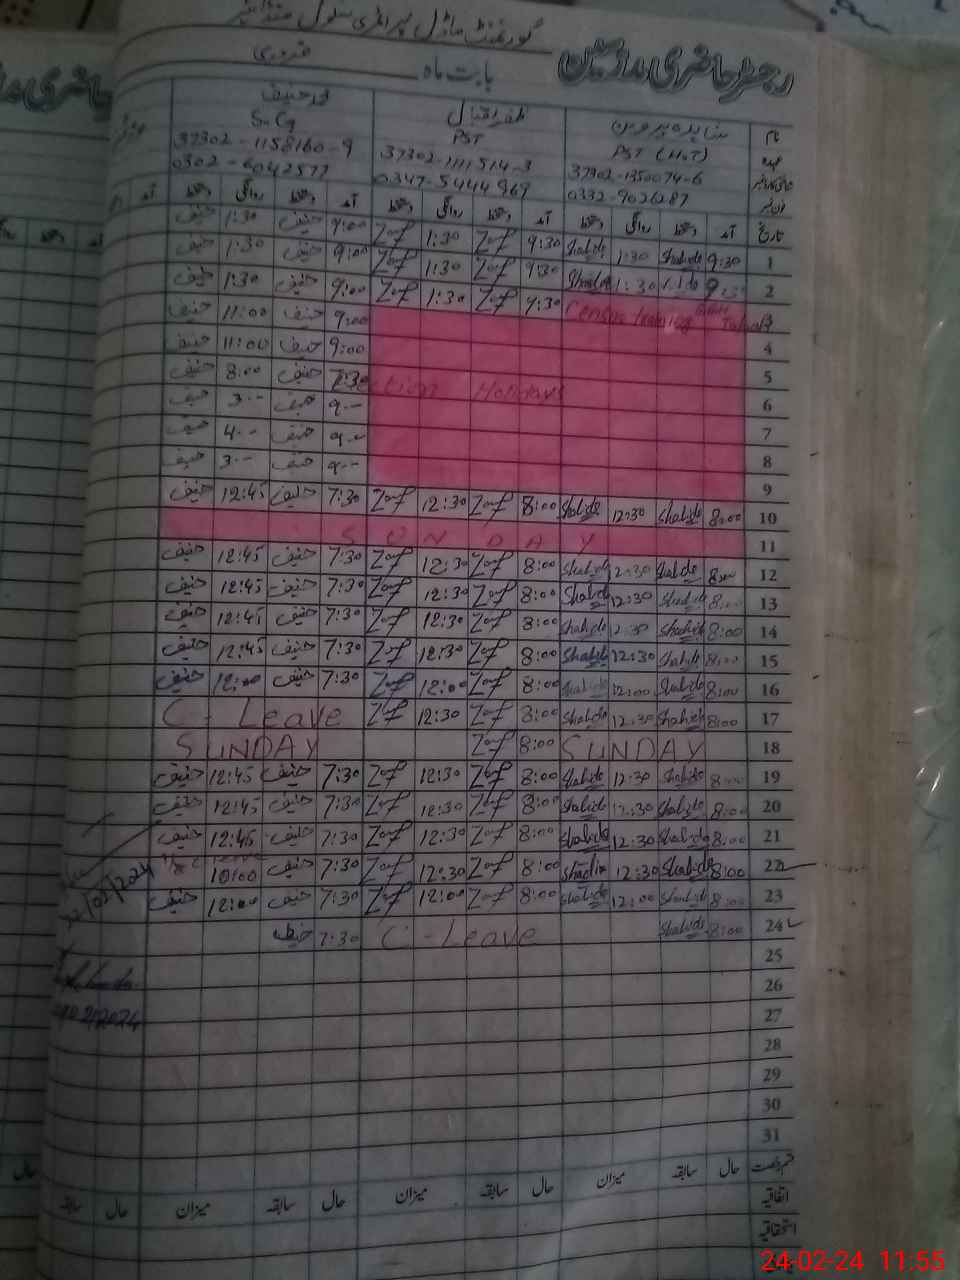 گورنمنٹ ماڈل پرائمری سکول
رجسٹر حاضری مدرسین
بابت ماہ فروری
نام شاہدہ پروین ظفر اقبال محمد حنیف
عہدہ PST (H.T) PST S.Cg
37302-1350074-6 37302-1111514-3 37302-1158160-9
0332-9026287 0347-5444969 0302-6042577
تاریخ آمد دستخط روانگی دستخط آمد دستخط روانگی دستخط آمد دستخط روانگی دستخط آمد
1 9:30 Shahida 1:30 Shahida 9:30 Zaf 1:30 Zaf 9:00 حنیف 1:30 حنیف
2 1:30 Shahida 9:30 Zaf 1:30 Zaf 9:00 حنیف 1:30 حنیف
3 Census training 9:30 Zaf 1:30 Zaf 9:00 حنیف 1:30 حنیف
4 9:00 حنیف 11:00 حنیف
5 9:00 حنیف 11:00 حنیف
6 Holidays 7:30 حنیف 8:00 حنیف
7 9-- حنیف 3-- حنیف
8 9-- حنیف 4-- حنیف
9 9-- حنیف 3-- حنیف
10 8:00 Shahida 12:30 Shahida 8:00 Zaf 12:30 Zaf 7:30 حنیف 12:45 حنیف
11 SUNDAY
12 8:00 Shahida 12:30 Shahida 8:00 Zaf 12:30 Zaf 7:30 حنیف 12:45 حنیف
13 8:00 Shahida 12:30 Shahida 8:00 Zaf 12:30 Zaf 7:30 حنیف 12:45 حنیف
14 8:00 Shahida 12:30 Shahida 8:00 Zaf 12:30 Zaf 7:30 حنیف 12:45 حنیف
15 8:00 Shahida 12:30 Shahida 8:00 Zaf 12:30 Zaf 7:30 حنیف 12:45 حنیف
16 8:00 Shahida 12:00 Shahida 8:00 Zaf 12:00 Zaf 7:30 حنیف 12:00 حنیف
17 8:00 Shahida 12:30 Shahida 8:00 Zaf 12:30 Zaf C- Leave
18 SUNDAY 8:00 Zaf SUNDAY
19 8:00 Shahida 12:30 Shahida 8:00 Zaf 12:30 Zaf 7:30 حنیف 12:45 حنیف
20 8:00 Shahida 12:30 Shahida 8:00 Zaf 12:30 Zaf 7:30 حنیف 12:45 حنیف
21 8:00 Shahida 12:30 Shahida 8:00 Zaf 12:30 Zaf 7:30 حنیف 12:45 حنیف
22 8:00 Shahida 12:30 Shahida 8:00 Zaf 12:30 Zaf 7:30 حنیف 10:00
22/02/2024
23 8:00 Shahida 12:00 Shahida 8:00 Zaf 12:00 Zaf 7:30 حنیف 12:00 حنیف
24 8:00 Shahida C- Leave 7:30 حنیف
25
26
27
28
29
30
31
قسم رخصت حال سابقہ میزان حال سابقہ میزان حال سابقہ میزان حال سابقہ
اتفاقیہ
استحقاقیہ
24-02-24 11:55